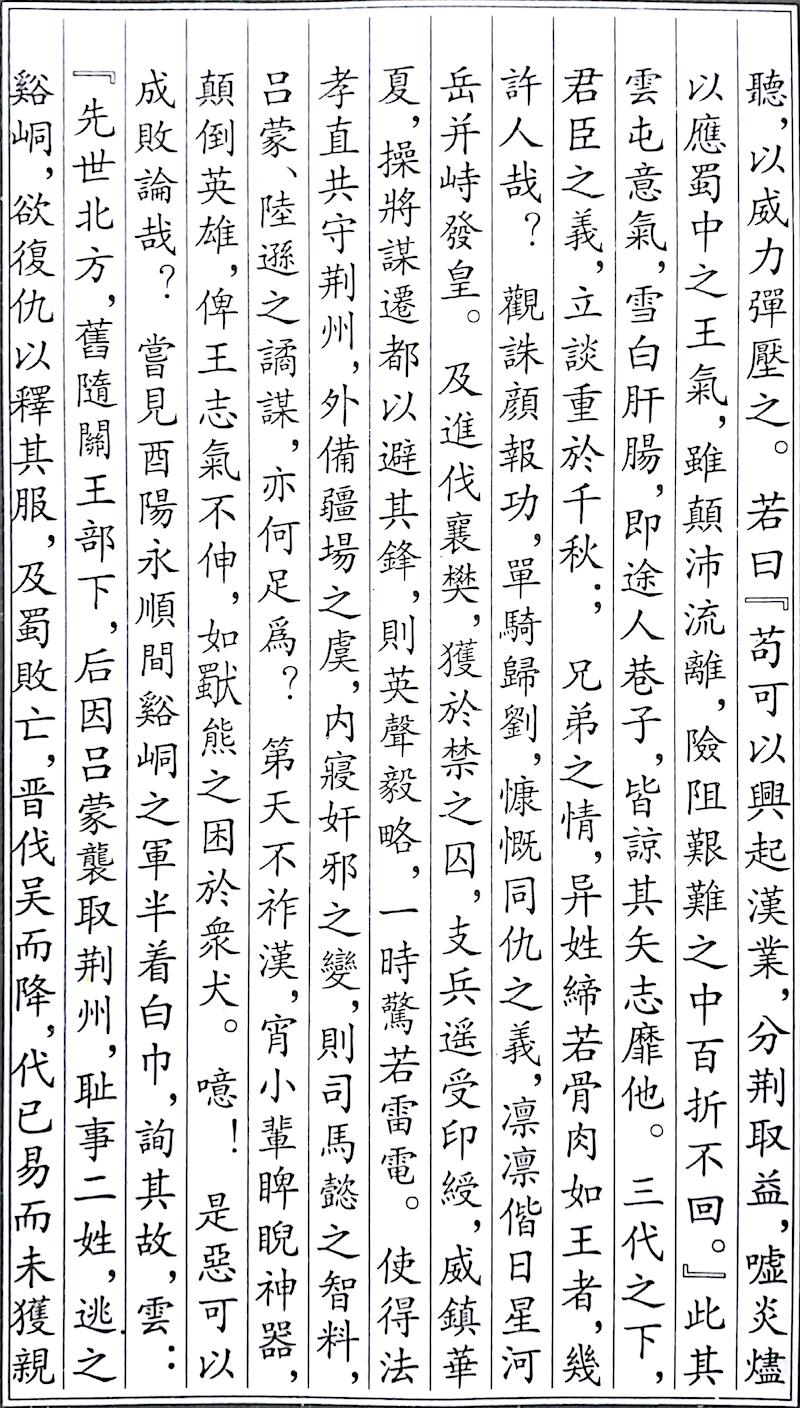 聽，以威力彈壓之。若曰『苟可以興起漢業，分荆取益，噓炎燼
以應蜀中之王氣，雖顛沛流離，險阻艱難之中百折不回。』此其
雲屯意氣，雪白肝腸，即途人巷子，皆諒其矢志靡他。三代之下，
君臣之義，立談重於千秋；兄弟之情，异姓締若骨肉如王者，幾
許人哉？觀誅顔報功，單騎歸劉，慷慨同仇之義，凛凛偕日星河
岳并峙發皇。及進伐襄樊，獲於禁之囚，支兵遥受印綬，威鎮華
夏，操將謀遷都以避其鋒，則英聲毅略，一時驚若雷電。使得法
孝直共守荆州，外備疆場之虞，内寢奸邪之變，則司馬懿之智料，
吕蒙、陸遜之譎謀，亦何足爲？第天不祚漢，宵小輩睥睨神器，
顛倒英雄，俾王志氣不伸，如獸熊之困於衆犬。噫！是惡可以
成敗論哉？嘗見酉陽永順間谿峒之軍半着白巾，詢其故，雲：
『先世北方，舊隨關王部下，后因吕蒙襲取荆州，耻事二姓，逃之
谿峒，欲復仇以釋其服，及蜀敗亡，晋伐吴而降，代已易而未獲親